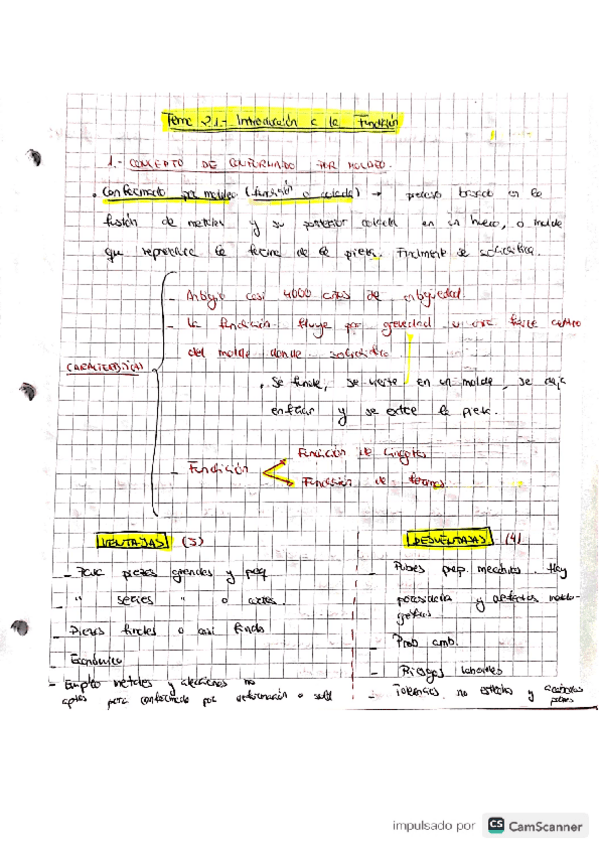 Tema 2.1.- Introducción a la Fundición
1.- CONCEPTO DE CONFORMADO POR MOLDEO.
• Conformado por moldeo (fundición o colada) → proceso basado en la
fusión de metales y su posterior colada en un hueco, o molde
que reproduce la forma de la pieza. Finalmente se solidifica.
CARACTERÍSTICAS
- Antiguo casi 4000 años de antigüedad.
- La fundición fluye por gravedad u otra fuerza dentro
del molde donde solidifica.
• Se funde, se vierte en un molde, se deja
enfriar y se extrae la pieza.
- Fundición
Fundición de lingotes
Fundición de formas
VENTAJAS (5)
- Para piezas grandes y peq
- " series " o cortas.
- Piezas finales o casi finales
- Económico
- Emplea metales y aleaciones no
aptos para conformado por deformación o sold
DESVENTAJAS (4)
- Pobres prop. mecánicas. Hay
porosidad y defectos metalo-
gráficos
- Prob amb.
- Riesgos laborales
- Tolerancias no estrechas y acabados
pobres
impulsado por CS CamScanner